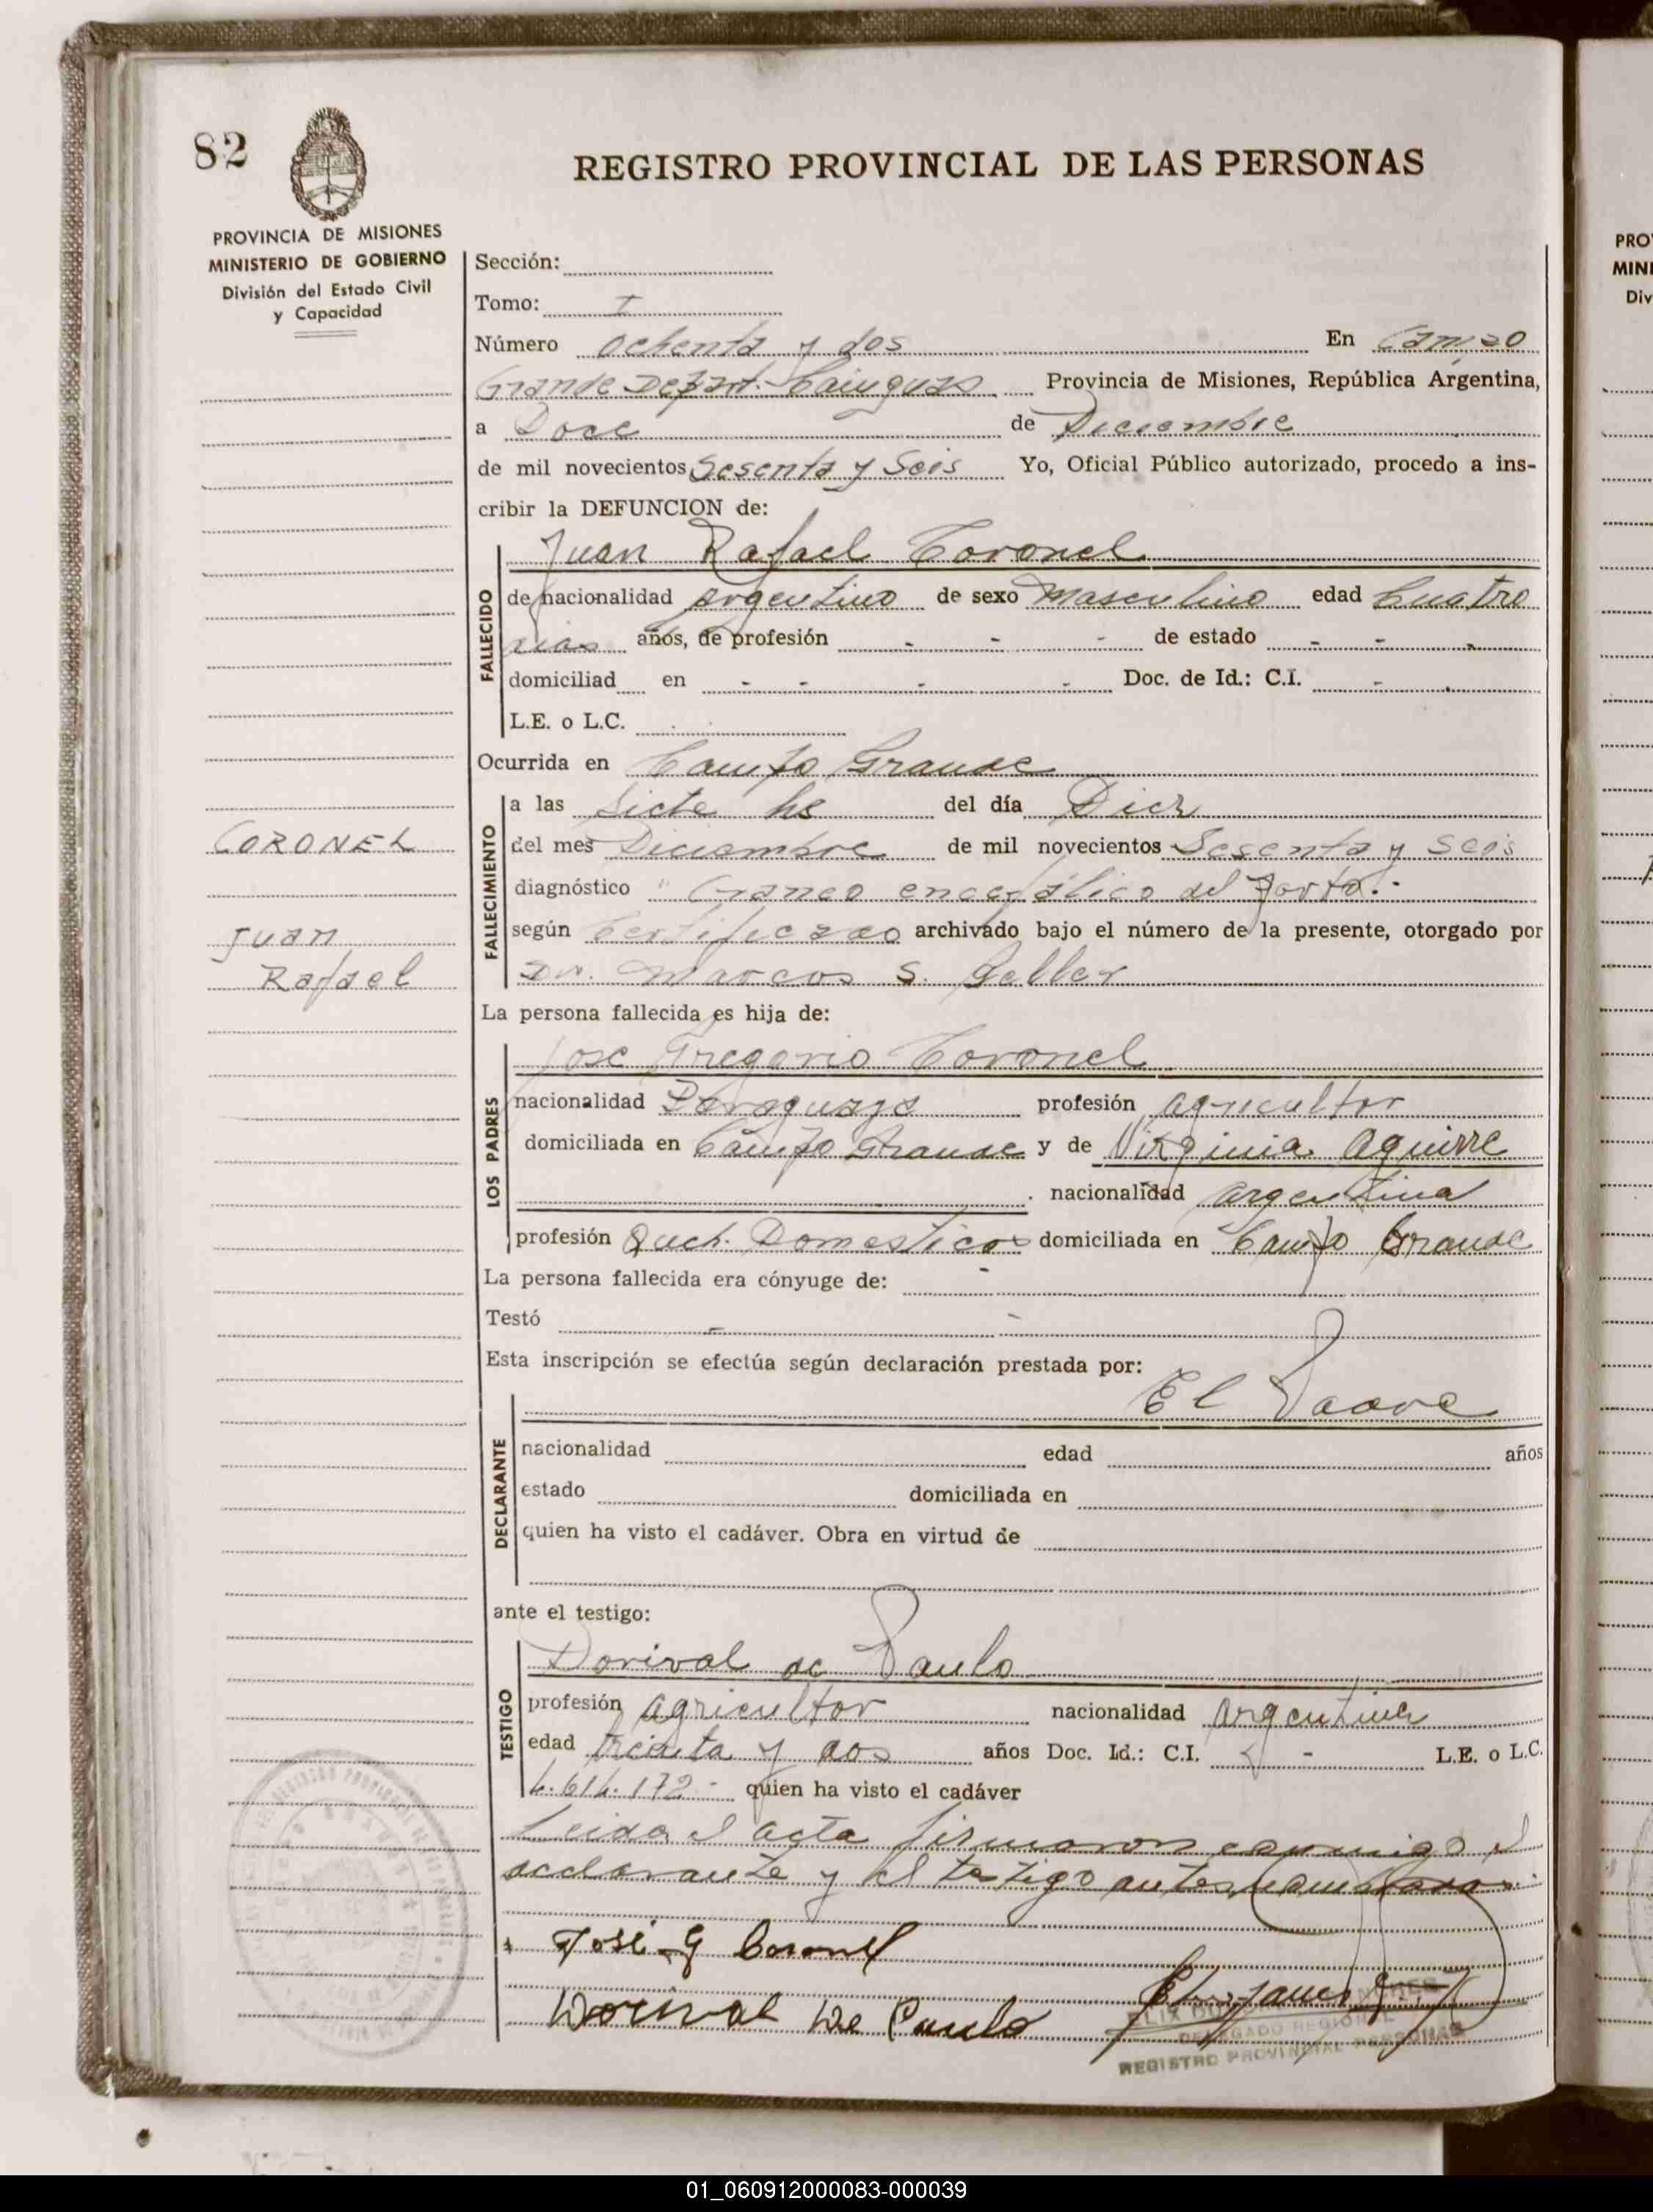 82
REGISTRO PROVINCIAL DE LAS PERSONAS
PROVINCIA DE MISIONES
MINISTERIO DE GOBIERNO
División del Estado Civil
y Capacidad
Sección:
Tomo: I
Número ochenta y dos En Campo
Grande Depart. Cainguas Provincia de Misiones, República Argentina,
a Doce de Diciembre
de mil novecientos Sesenta y Seis Yo, Oficial Público autorizado, procedo a ins-
cribir la DEFUNCION de:
Juan Rafael Coronel
FALLECIDO
de nacionalidad argentino de sexo Masculino edad Cuatro
dias años, de profesión - - - de estado - - -
domiciliad en - - - - Doc. de Id.: C.I. -
L.E. o L.C.
Ocurrida en Campo Grande
FALLECIMIENTO
a las Siete hs del día Diez
del mes Diciembre de mil novecientos Sesenta y Seis
diagnóstico " Craneo encefálico del Parto.-
según Certificado archivado bajo el número de la presente, otorgado por
Dr. Marcos S. Geller
CORONEL
Juan
Rafael
La persona fallecida es hija de:
LOS PADRES
Jose Gregorio Coronel
nacionalidad Paraguaya profesión agricultor
domiciliada en Campo Grande y de Virginia Aguirre
nacionalidad argentina
profesión Queh. Domesticos domiciliada en Campo Grande
La persona fallecida era cónyuge de: -
Testó - -
Esta inscripción se efectúa según declaración prestada por:
DECLARANTE
El Padre
nacionalidad edad años
estado domiciliada en
quien ha visto el cadáver. Obra en virtud de
ante el testigo:
TESTIGO
Dorival de Paulo
profesión agricultor nacionalidad argentina
edad treinta y dos años Doc. Id.: C.I. - L.E. o L.C.
4.614.172- quien ha visto el cadáver
Leida el acta firmaron conmigo el
declarante y el testigo antes nombrados.
José G Coronel
Dorival De Paulo
DELEGADO REGIONAL
REGISTRO PROVINCIAL PERSONAS
PRO
MINI
Div
01_060912000083-000039